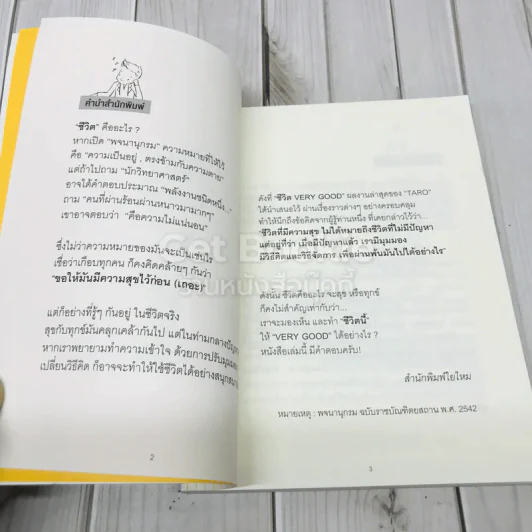 คำนำสำนักพิมพ์
"ชีวิต" คืออะไร ?
หากเปิด "พจนานุกรม" ความหมายที่ให้ไว้
คือ "ความเป็นอยู่ , ตรงข้ามกับความตาย"
แต่ถ้าไปถาม "นักวิทยาศาสตร์"
อาจได้คำตอบประมาณ "พลังงานชนิดหนึ่ง..."
ถาม "คนที่ผ่านร้อนผ่านหนาวมามากๆ"
เขาอาจตอบว่า "คือความไม่แน่นอน"
ซึ่งไม่ว่าความหมายของมันจะเป็นเช่นไร
เชื่อว่าเกือบทุกคน ก็คงคิดคล้ายๆ กันว่า
"ขอให้มันมีความสุขไว้ก่อน (เถอะ)"
แต่ก็อย่างที่รู้ๆ กันอยู่ ในชีวิตจริง
สุขกับทุกข์มันคลุกเคล้ากันไป แต่ในท่ามกลางปัญหา
หากเราพยายามทำความเข้าใจ ด้วยการปรับมุมมอง
เปลี่ยนวิธีคิด ก็อาจจะทำให้ใช้ชีวิตได้อย่างสนุกสนาน
2
ดังที่ "ชีวิต VERY GOOD" ผลงานล่าสุดของ "TARO"
ได้นำเสนอไว้ ผ่านเรื่องราวต่างๆ อย่างครอบคลุม
ทำให้นึกถึงข้อคิดจากผู้รู้ท่านหนึ่ง ที่เคยกล่าวไว้ว่า...
"ชีวิตที่มีความสุข ไม่ได้หมายถึงชีวิตที่ไม่มีปัญหา
แต่อยู่ที่ว่า เมื่อมีปัญหาแล้ว เรามีมุมมอง
มีวิธีคิดและวิธีจัดการ เพื่อผ่านพ้นมันไปได้อย่างไร"
ดังนั้น ชีวิตคืออะไร จะสุข หรือทุกข์
ก็คงไม่สำคัญเท่ากับว่า...
เราจะมองเห็น และทำ "ชีวิตนี้"
ให้ "VERY GOOD" ได้อย่างไร ?
หนังสือเล่มนี้ มีคำตอบครับ!
สำนักพิมพ์ใยไหม
หมายเหตุ : พจนานุกรม ฉบับราชบัณฑิตยสถาน พ.ศ. 2542
3